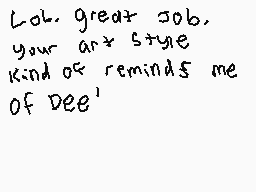 Lol. great Job.
your art style
kind of reminds me
of Dee'